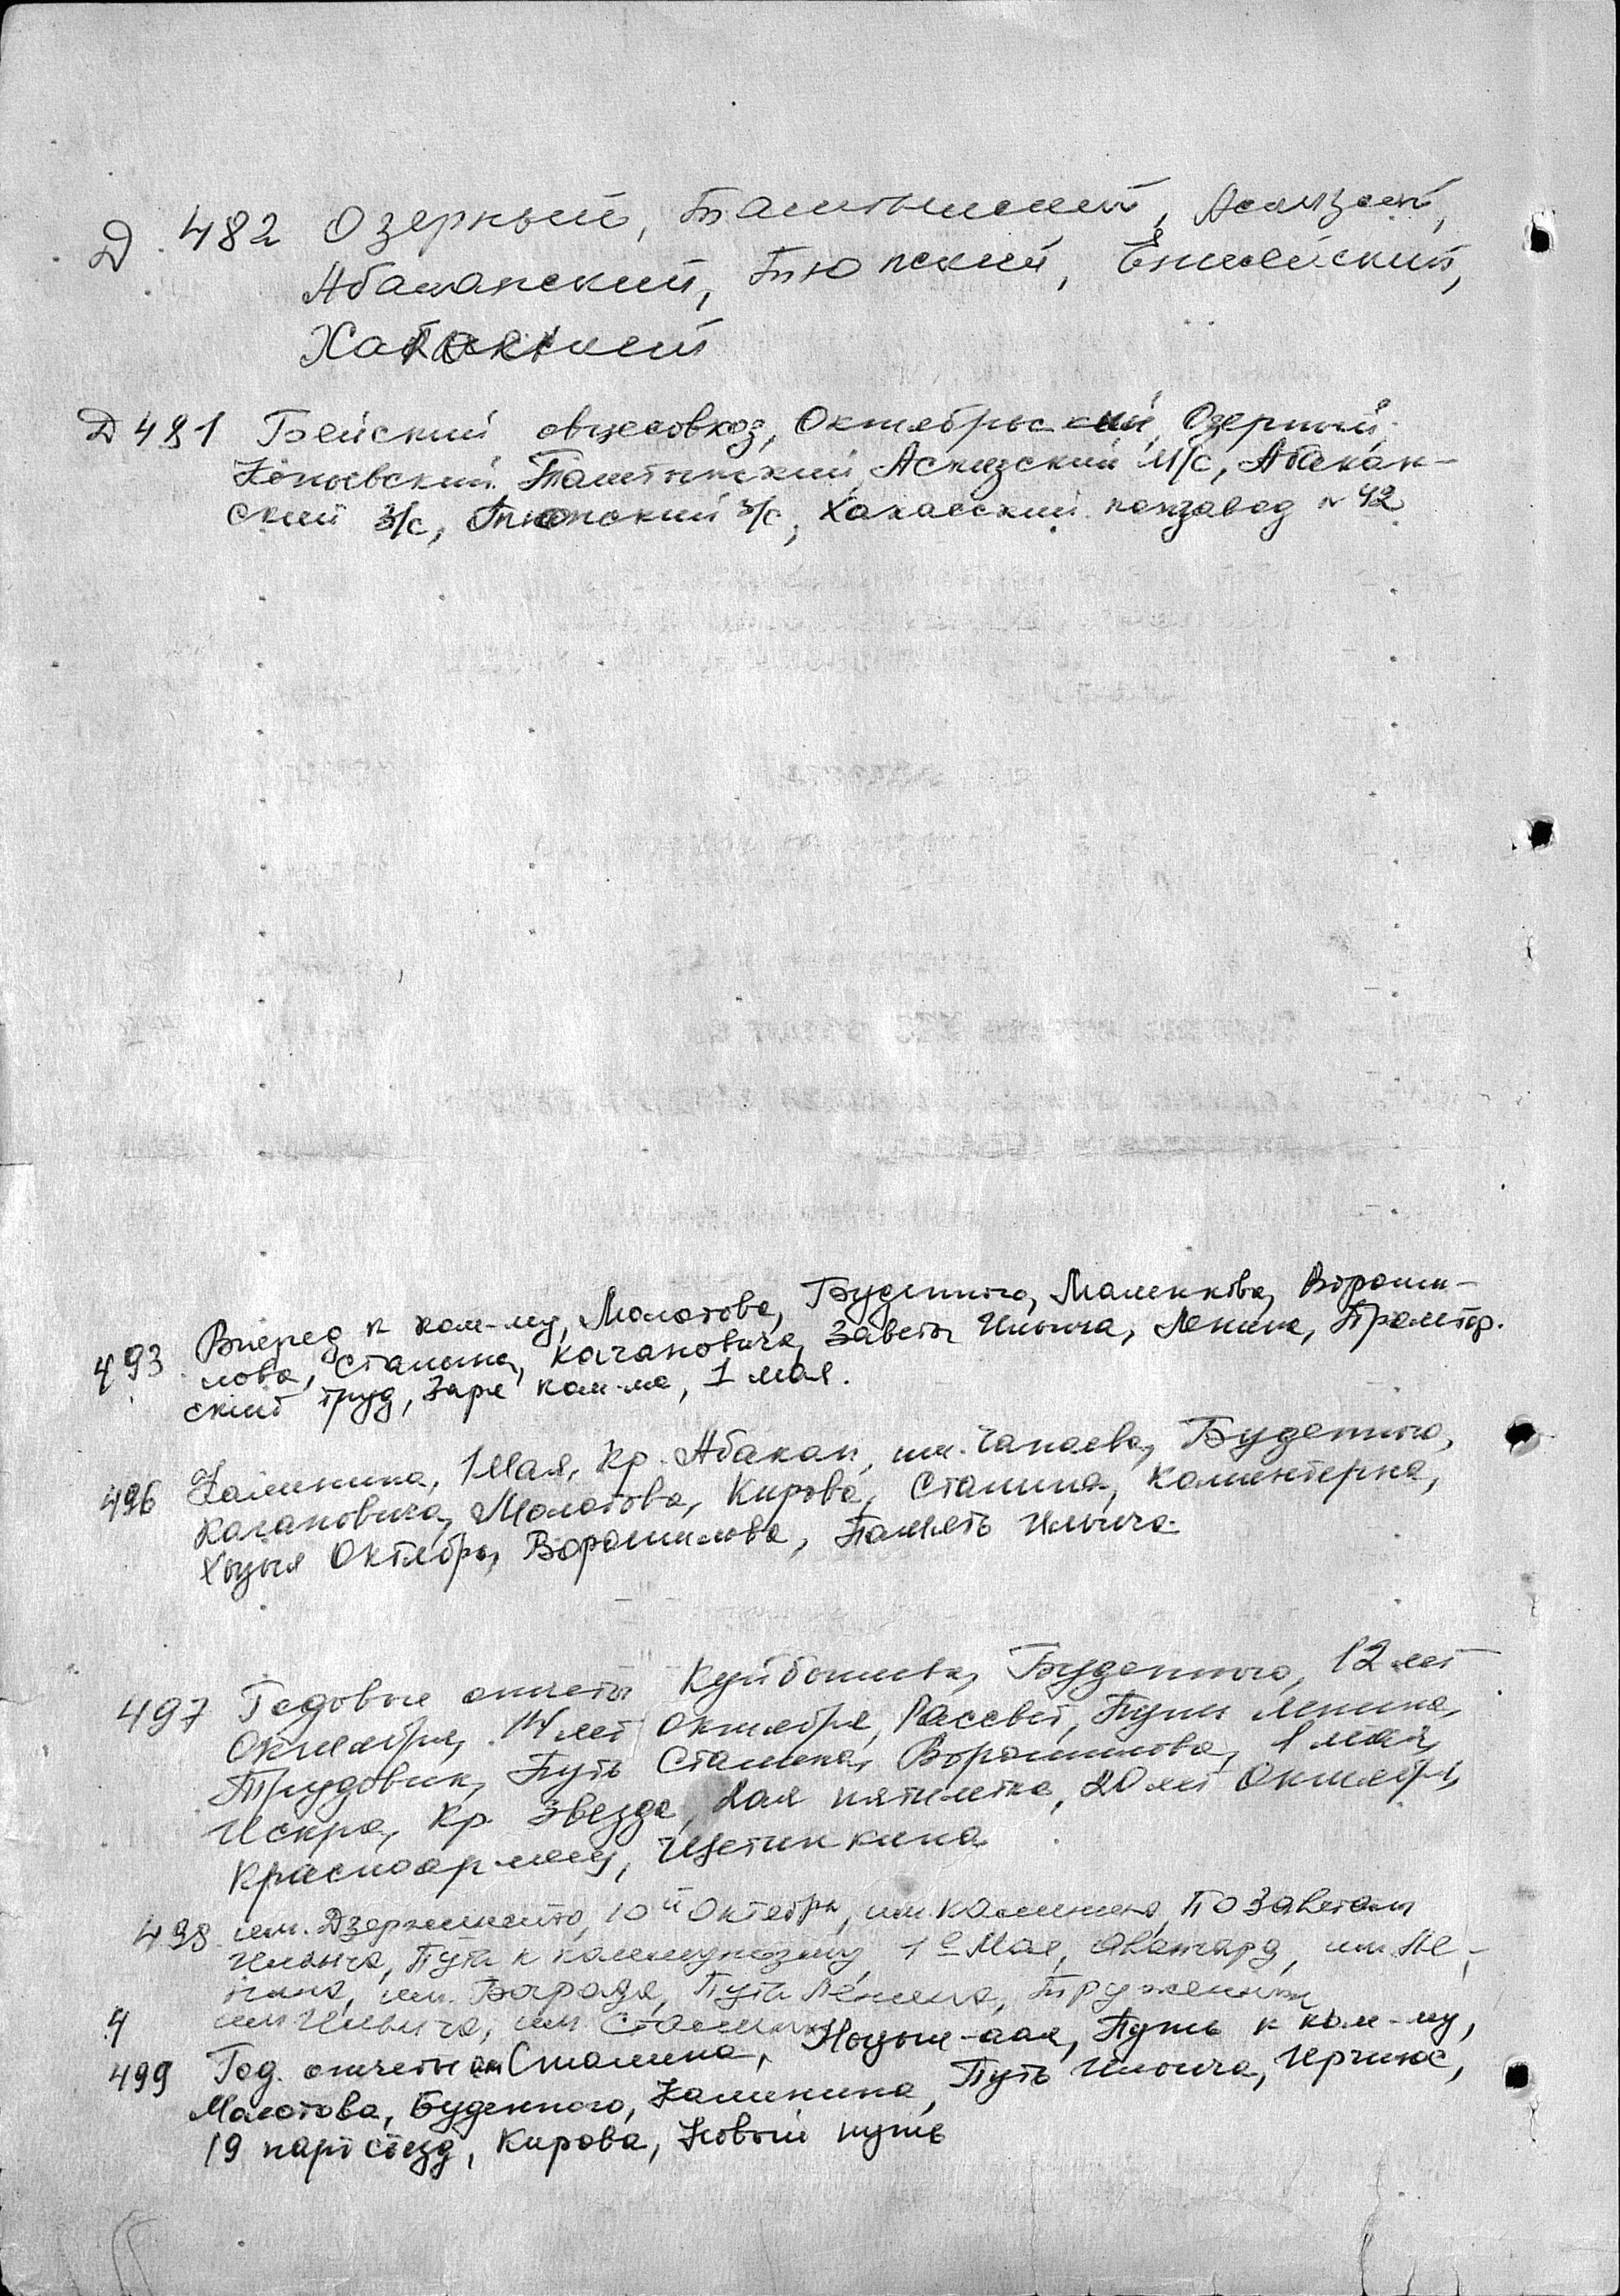 Д. 482 Озерный, Таштыпский, Аскизский,
Абаканский, Тюпский, Енисейский,
Хакасский
Д 481 Бейский овцесовхоз, Октябрьский, Озерный,
Копьевский, Таштыпский, Аскизский М/с, Абакан-
ский З/с, Тюпский З/с, Хакасский конзавод № 42
493 Вперед к ком-му, Молотова, Буденного, Маленкова, Вороши-
лова, Сталина, Кагановича, Заветы Ильича, Ленина, Пролетар.
ский труд, Заря ком-ма, 1 мая.
496 Калинина, 1 Мая, Кр. Абакан, им. Чапаева, Буденного,
Кагановича, Молотова, Кирова, Сталина, Коминтерна,
Хызыл Октябрь, Ворошилова, Память Ильича
497 Годовые отчеты Куйбышева, Буденного, 12 лет
Октября, 14 лет Октября, Рассвет, Путь Ленина,
Трудовик, Путь Сталина, Ворошилова, 1 мая,
Искра, Кр. Звезда, 2ая пятилетка, 20 лет Октября,
Красноармеец, Щетинкина
498 им. Дзержинского, 10й Октябрь, им. Калинина, По Заветам
Ильича, Путь к коммунизму, 1е Мая, Авангард, им. Ле-
нина, им. Путь Ленина, Труженик
им Ильича, им Сталина
4
499 Год. отчеты им Сталина, Чоден-аал, Путь к ком-му,
Молотова, Буденного, Калинина, Путь Ильича, Ирчиюс,
19 партсъезд, Кирова, Новый путь